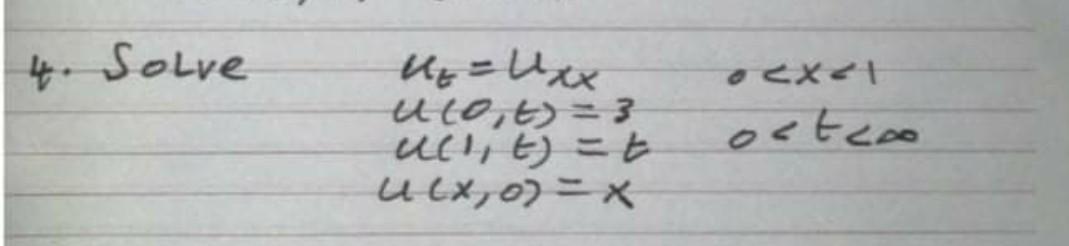 4. Solve u_t = u_xx 0<x<1
u(0,t) = 3
u(1,t) = t 0<t<∞
u(x,0) = x